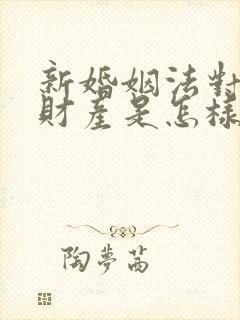 新婚姻法對
財產是怎樣
陶夢茜